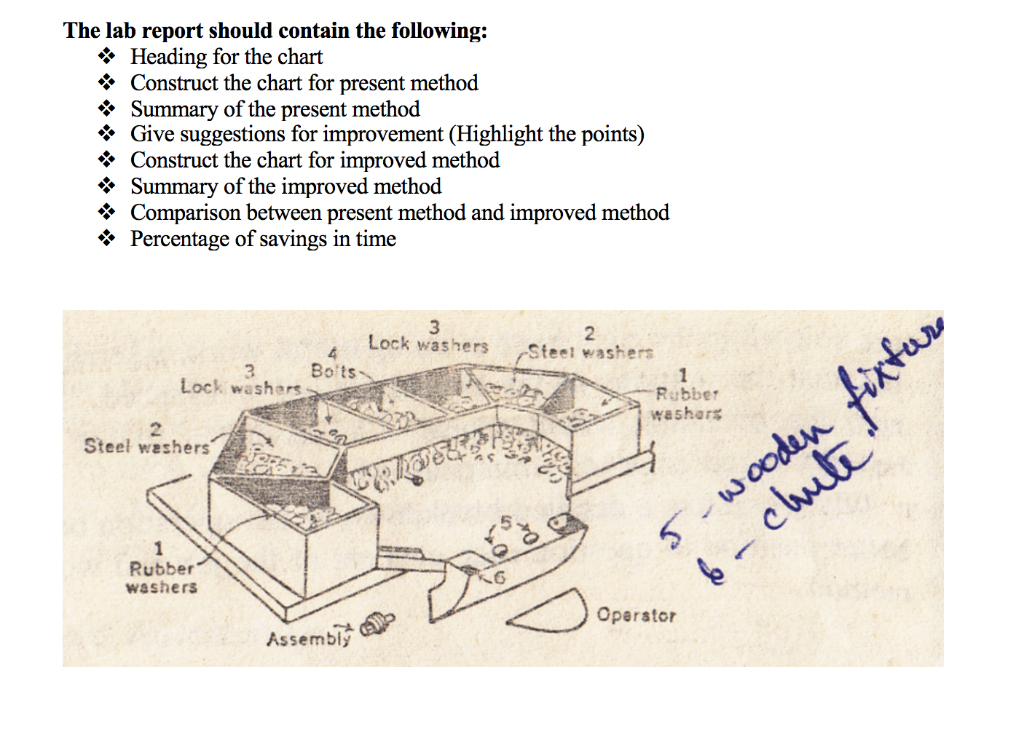 The lab report should contain the following:
❖ Heading for the chart
❖ Construct the chart for present method
❖ Summary of the present method
❖ Give suggestions for improvement (Highlight the points)
❖ Construct the chart for improved method
❖ Summary of the improved method
❖ Comparison between present method and improved method
❖ Percentage of savings in time
3
Lock washers
2
Steel washers
4
Bolts
3
Lock washers
1
Rubber
washers
2
Steel washers
5 - wooden fixture
6 - chute
5
6
1
Rubber
washers
Operator
Assembly